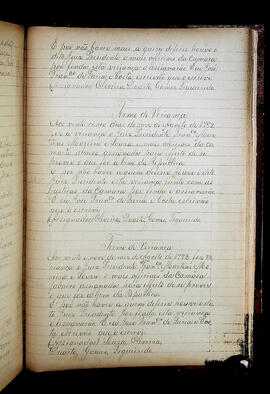 E por não haver mais a quem deferir houve o
dito Juiz Presidente e mais officiais da Camara
por finda esta vereança e assignarão Eu José
Franco de Faria e Costa escrivão que o escrevi
(Assignados) Oliveira Duarte Gomes Figueiredo
Termo de Vereança
Aos vinte dias do mez de Agosto de 1792
fez a vereança o Juiz Presidente Franco Mar
tins e mais officiaes da Ca
mara abaixo assignados para effeito de se
prover o que for a bem da Republica
E por não haver a quem deferir houve o dito
Juiz Presidente esta vereança finda com os
officiaes da Camara por finda e assignarão
E eu José Franco de Faria e Costa escrivão
que o escrevi
(Assignados) Oliveira Duarte Gomes Figueiredo
Termo de Vereança
Aos vinte e nove do mez de Agosto de 1792 fez a ve
reança o Juiz Presidente Franco Martins
e mais officiaes da Camara
abaixo assignados para effeito de se prover o
que for a bem da Republica
E por não haver a quem deferir houve o di
to Juiz Presidente por finda esta vereança
e assignarão E eu José Franco de Faria e Cos
ta escrivão que o escrevi
(Assignados) Souza Oliveira,
Duarte, Gomes, Figueiredo